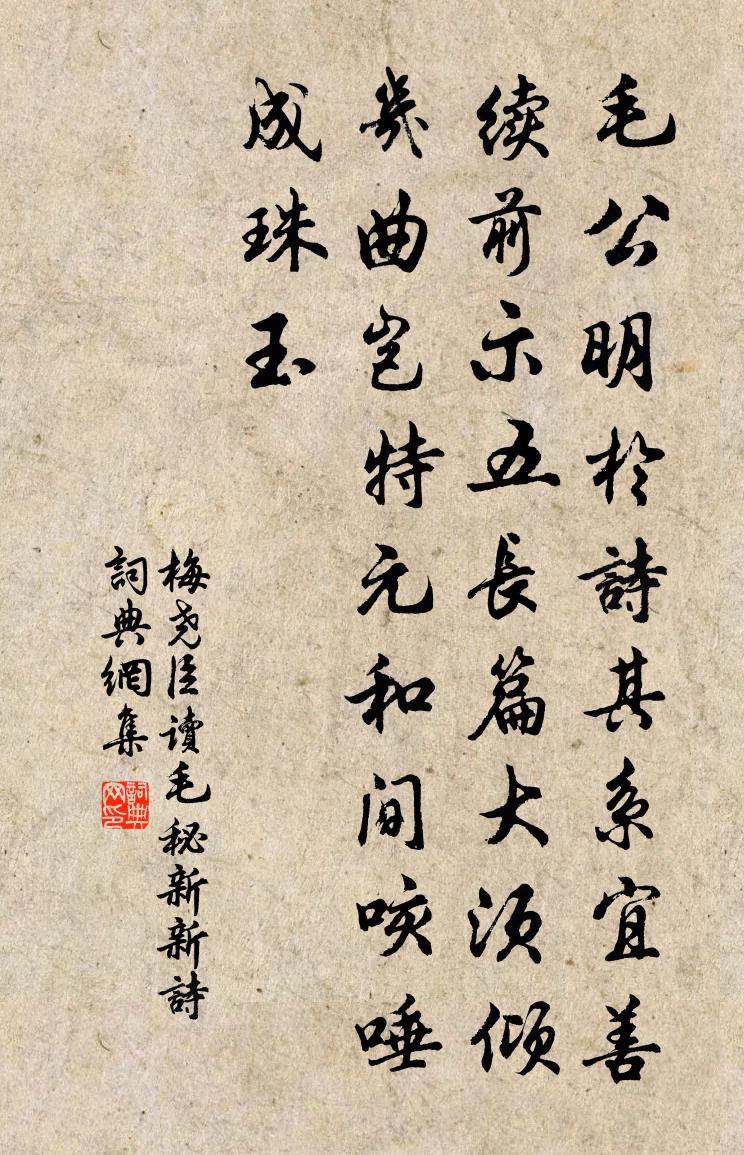 毛公明於詩其系宜善
續前示五長篇大須傾
幾曲豈特元和間咳唾
成珠玉
梅尧臣讀毛秘新新詩
詞典網集
詞典网印